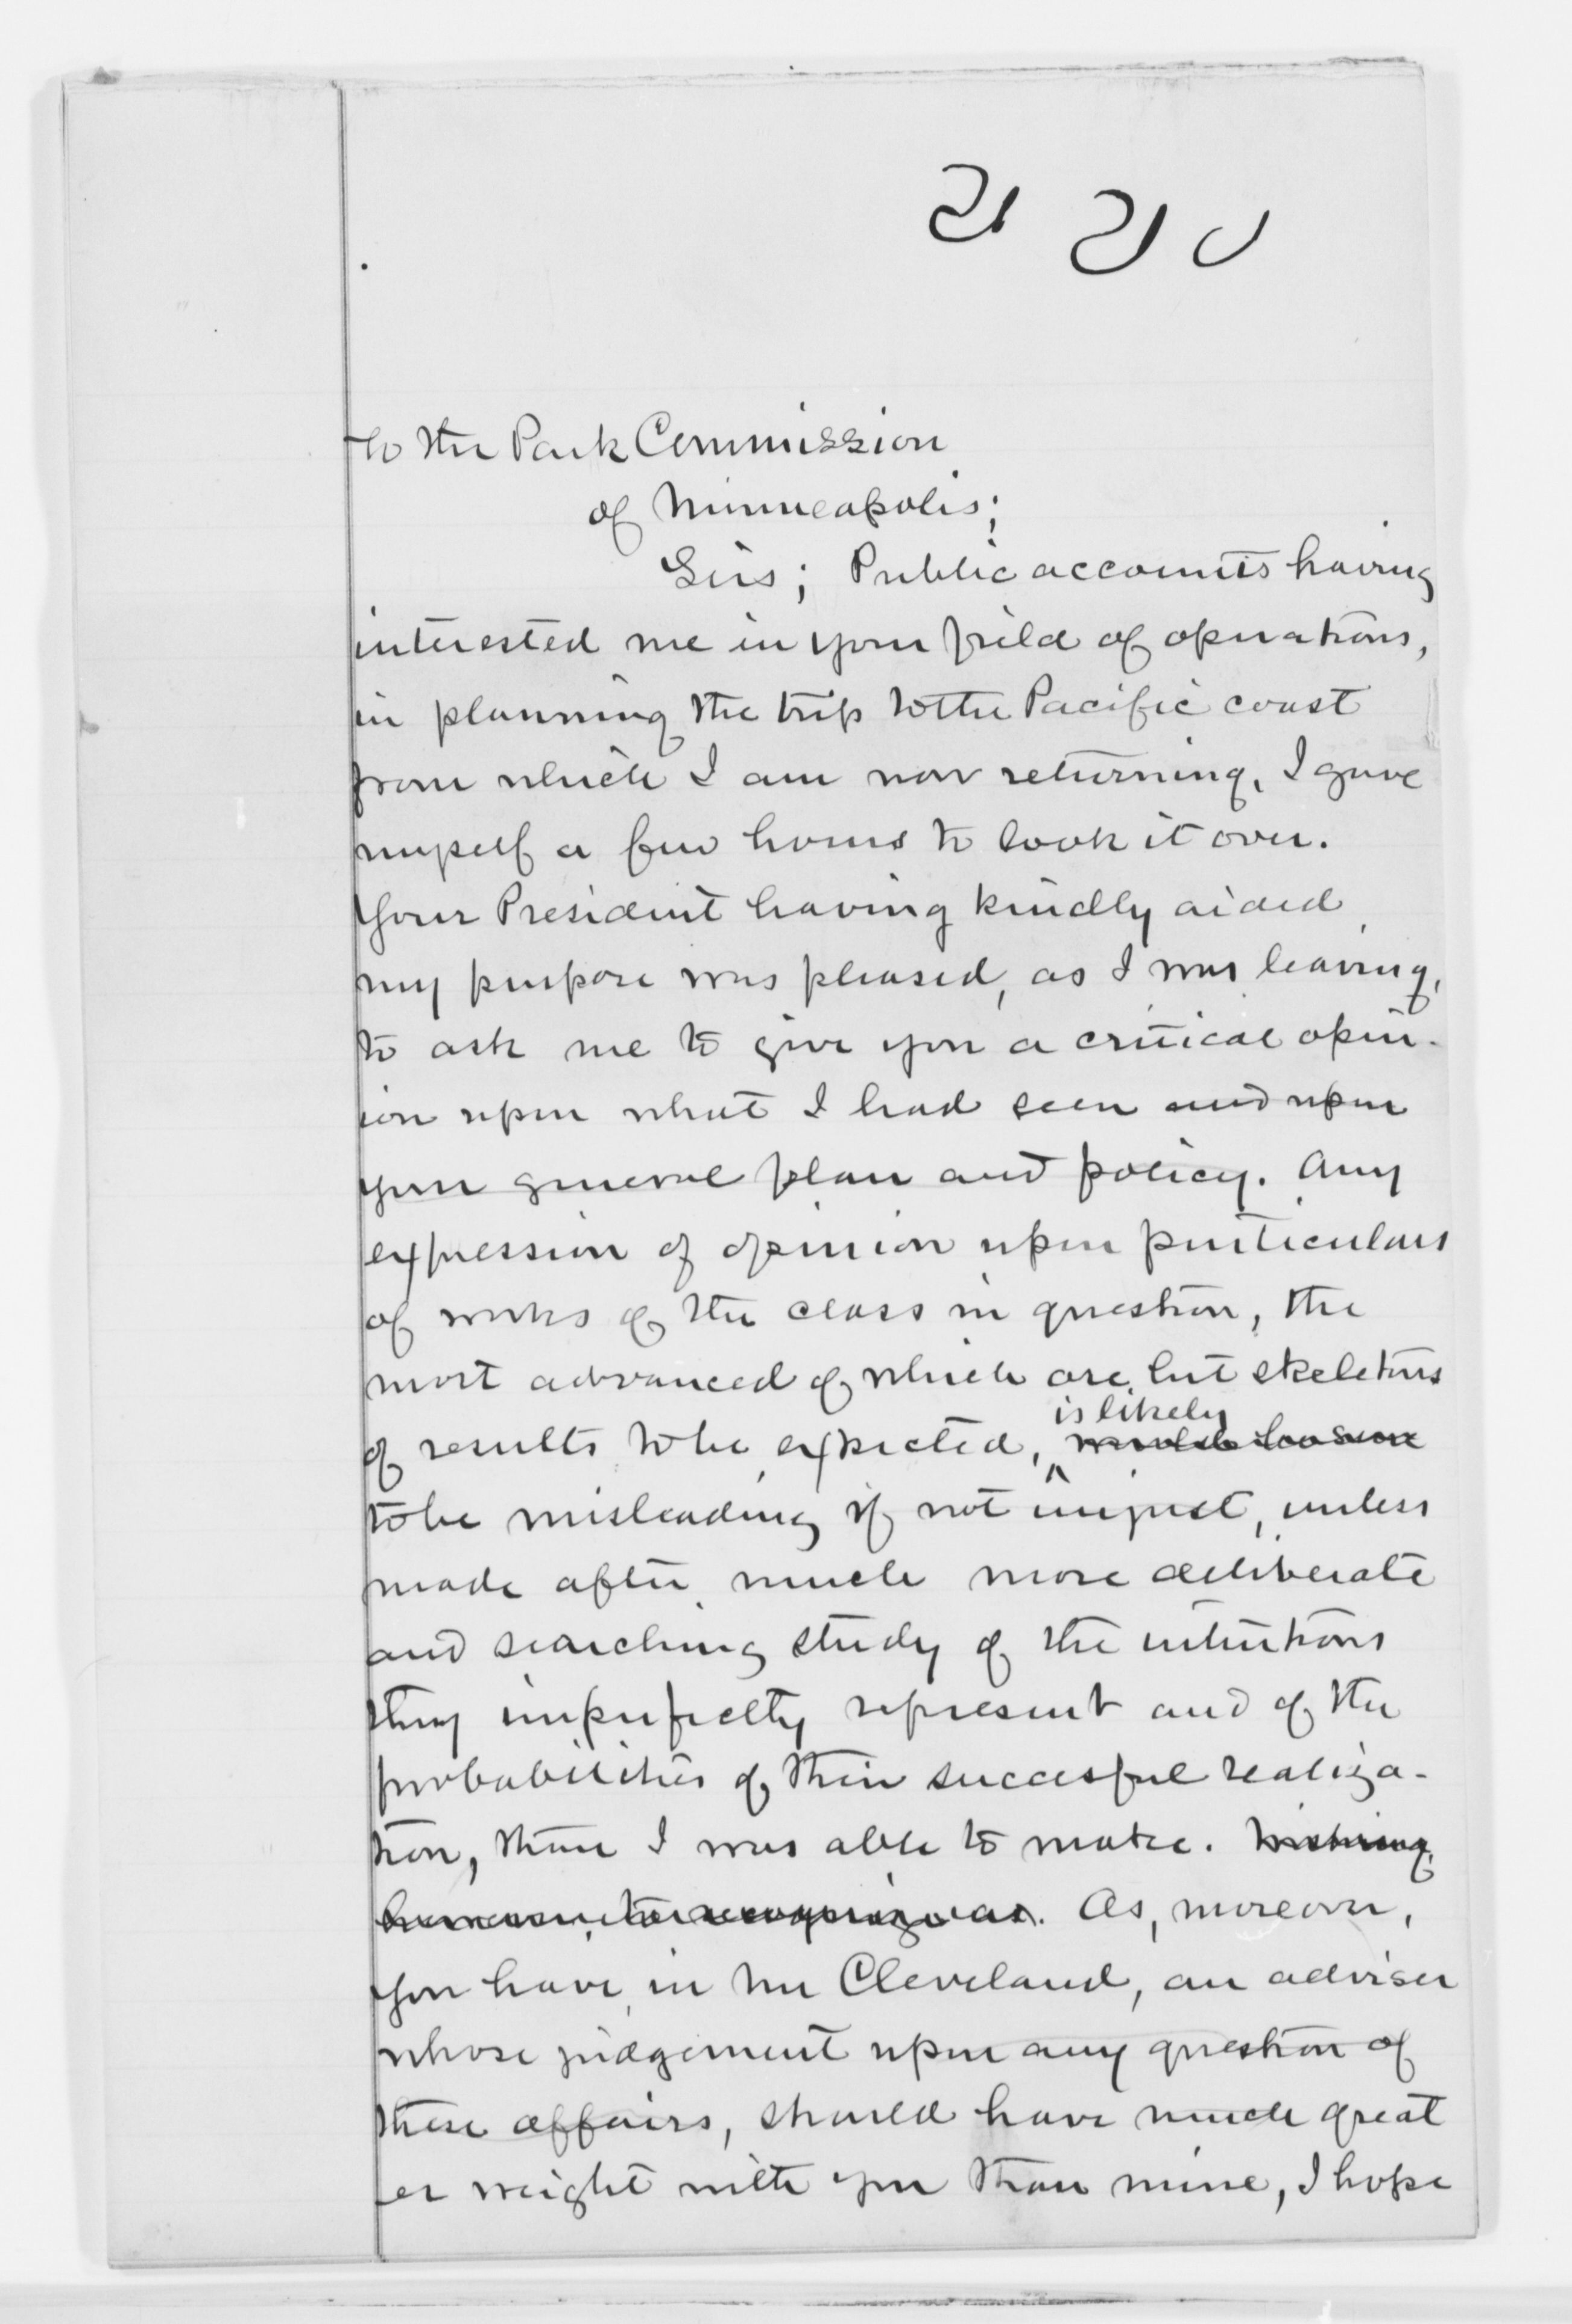 To the Park Commission
of Minneapolis;
Sirs; Public accounts having
interested me in your field of operations,
in planning the trip to the Pacific coast
from which I am now returning, I gave
myself a few hours to look it over.
Your President having kindly aided
my purpose was pleased, as I was leaving,
to ask me to give you a critical opin-
ion upon what I had seen and upon
your general plan and policy. Any
expression of opinion upon particulars
of works of the class in question, the
most advanced of which are but skeletons
is likely
of results to be expected,
to be misleading if not unjust, unless
made after much more deliberate
and searching study of the intentions
they imperfectly represent and of the
probabilities of their succesful realiza-
tion, than I was able to make.
As, moreover,
you have, in Mr Cleveland, an adviser
whose judgement upon any question of
these affairs, should have much great
er weight with you than mine, I hope